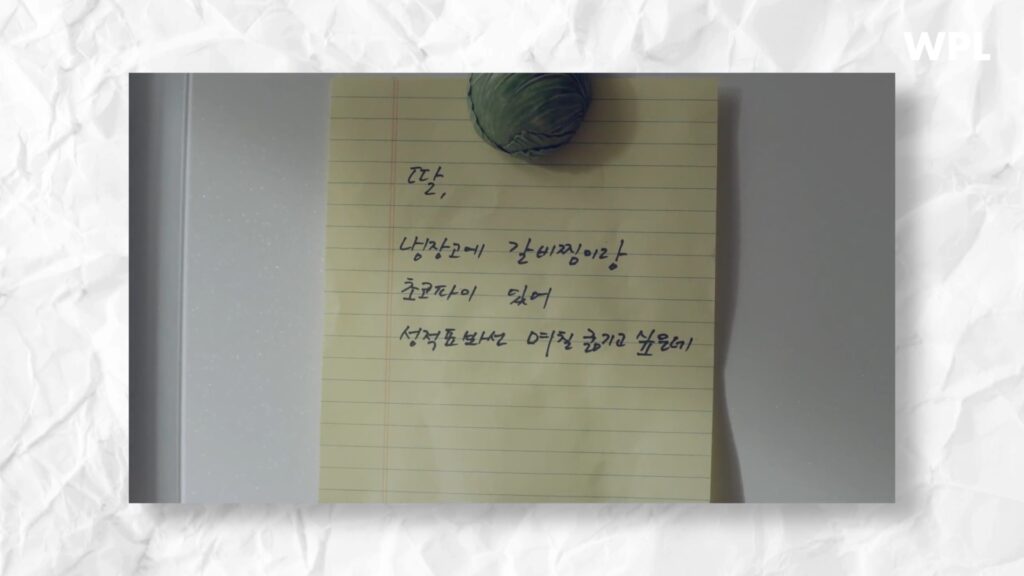 WPL
딸,
냉장고에 갈비찜이랑
초코파이 있어
성적표봐선 며칠 굶기고 싶은데